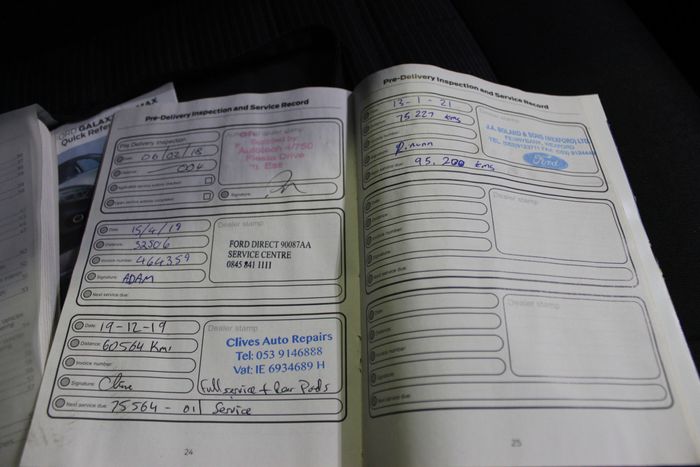 ORD GALAX
MAX
Quick Refe
Pre-Delivery Inspection and Service Record
Pre Delivery Inspection
06/02/18
006
Signature:
Autotech 4/750
Fiesta Drive
Date: 15/4/19
Distance: 32506
Invoice number: 464359
Signature: ADAM
Next service due:
Dealer stamp
FORD DIRECT 90087AA
SERVICE CENTRE
0845 841 1111
Date: 19-12-19
Distance: 60564 Kmi
Invoice number:
Signature: Clive
Next service due: 75564 - oil Service
Dealer stamp
Clives Auto Repairs
Tel: 053 9146888
Vat: IE 6934689 H
Full service + Rear Pads
24
Pre-Delivery Inspection and Service Record
13-1-21
75 227 kms
95,200 kms
J.A. BOLAND & SONS (WEXFORD) LTD.
FERRYBANK, WEXFORD
Ford
Date:
Distance:
Invoice number:
Signature:
Next service due:
Dealer stamp
Date:
Distance:
Invoice number:
Signature:
Next service due:
Dealer stamp
25